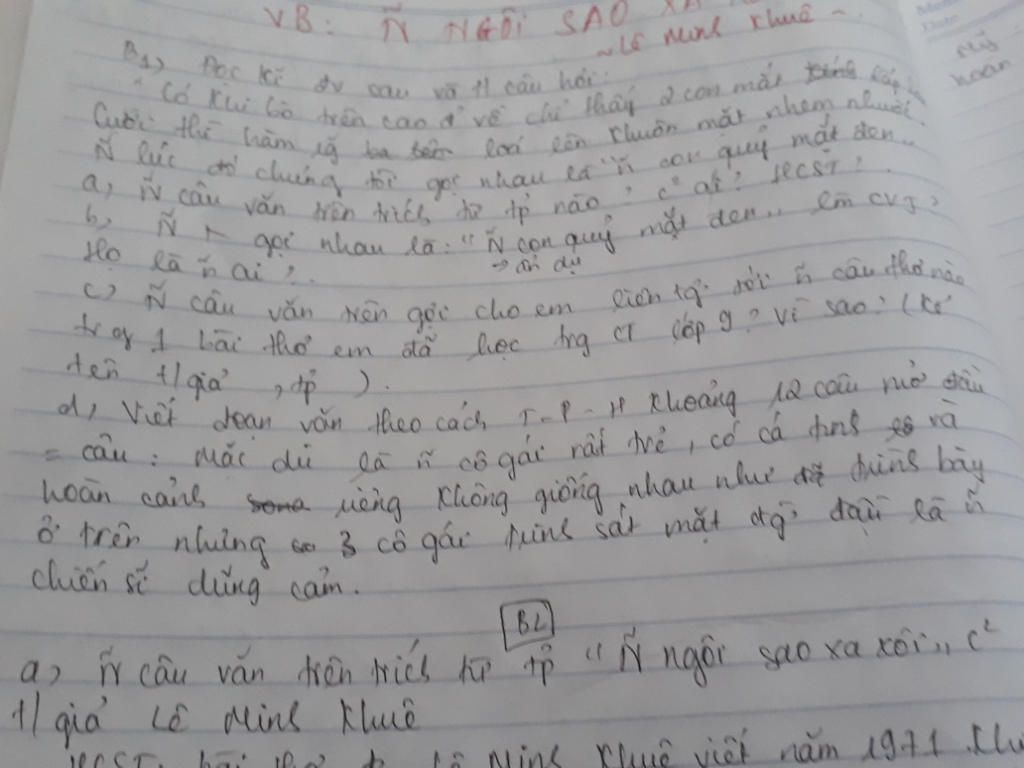 VB: Ñ NGÔI SAO XA
~ Lê Minh Khuê ~
B1) Đọc kĩ đv sau và t/l câu hỏi:
"Có khi bò trên cao đ' về chỉ thấy 2 con mắt lấp
Cười thì hàm ră loá lên khuôn mặt nhem nhuốc.
Ñ lúc đó chúng tôi gọi nhau là "ñ con quỷ mắt đen"
a, Ñ câu văn trên trích từ tp nào? c² ai? HCST?
b, Ñ gọi nhau là: "Ñ con quỷ mắt đen" ...
→ ẩn dụ
Họ là ñ ai?
c, Ñ câu văn trên gợi cho em liên tg' tới ñ câu thơ nào
trog 1 bài thơ em đã học trg CT lớp 9? vì sao? (kể
tên t/giả, tp).
d, Viết đoạn văn theo cách T-P-H khoảng 12 câu mở đầu
= câu: Mặc dù là ñ cô gái rất trẻ, có cá tính và
hoàn cảnh riêng không giống nhau như trình bày
ở trên nhưng 3 cô gái trinh sát mặt đg' đều là ñ
chiến sĩ dũng cảm.
BL
a, Ñ câu văn trên trích từ tp "Ñ ngôi sao xa xôi" c²
t/giả Lê Minh Khuê
HCST: Lê Minh Khuê viết năm 1971 khi
mỹ
hoàn